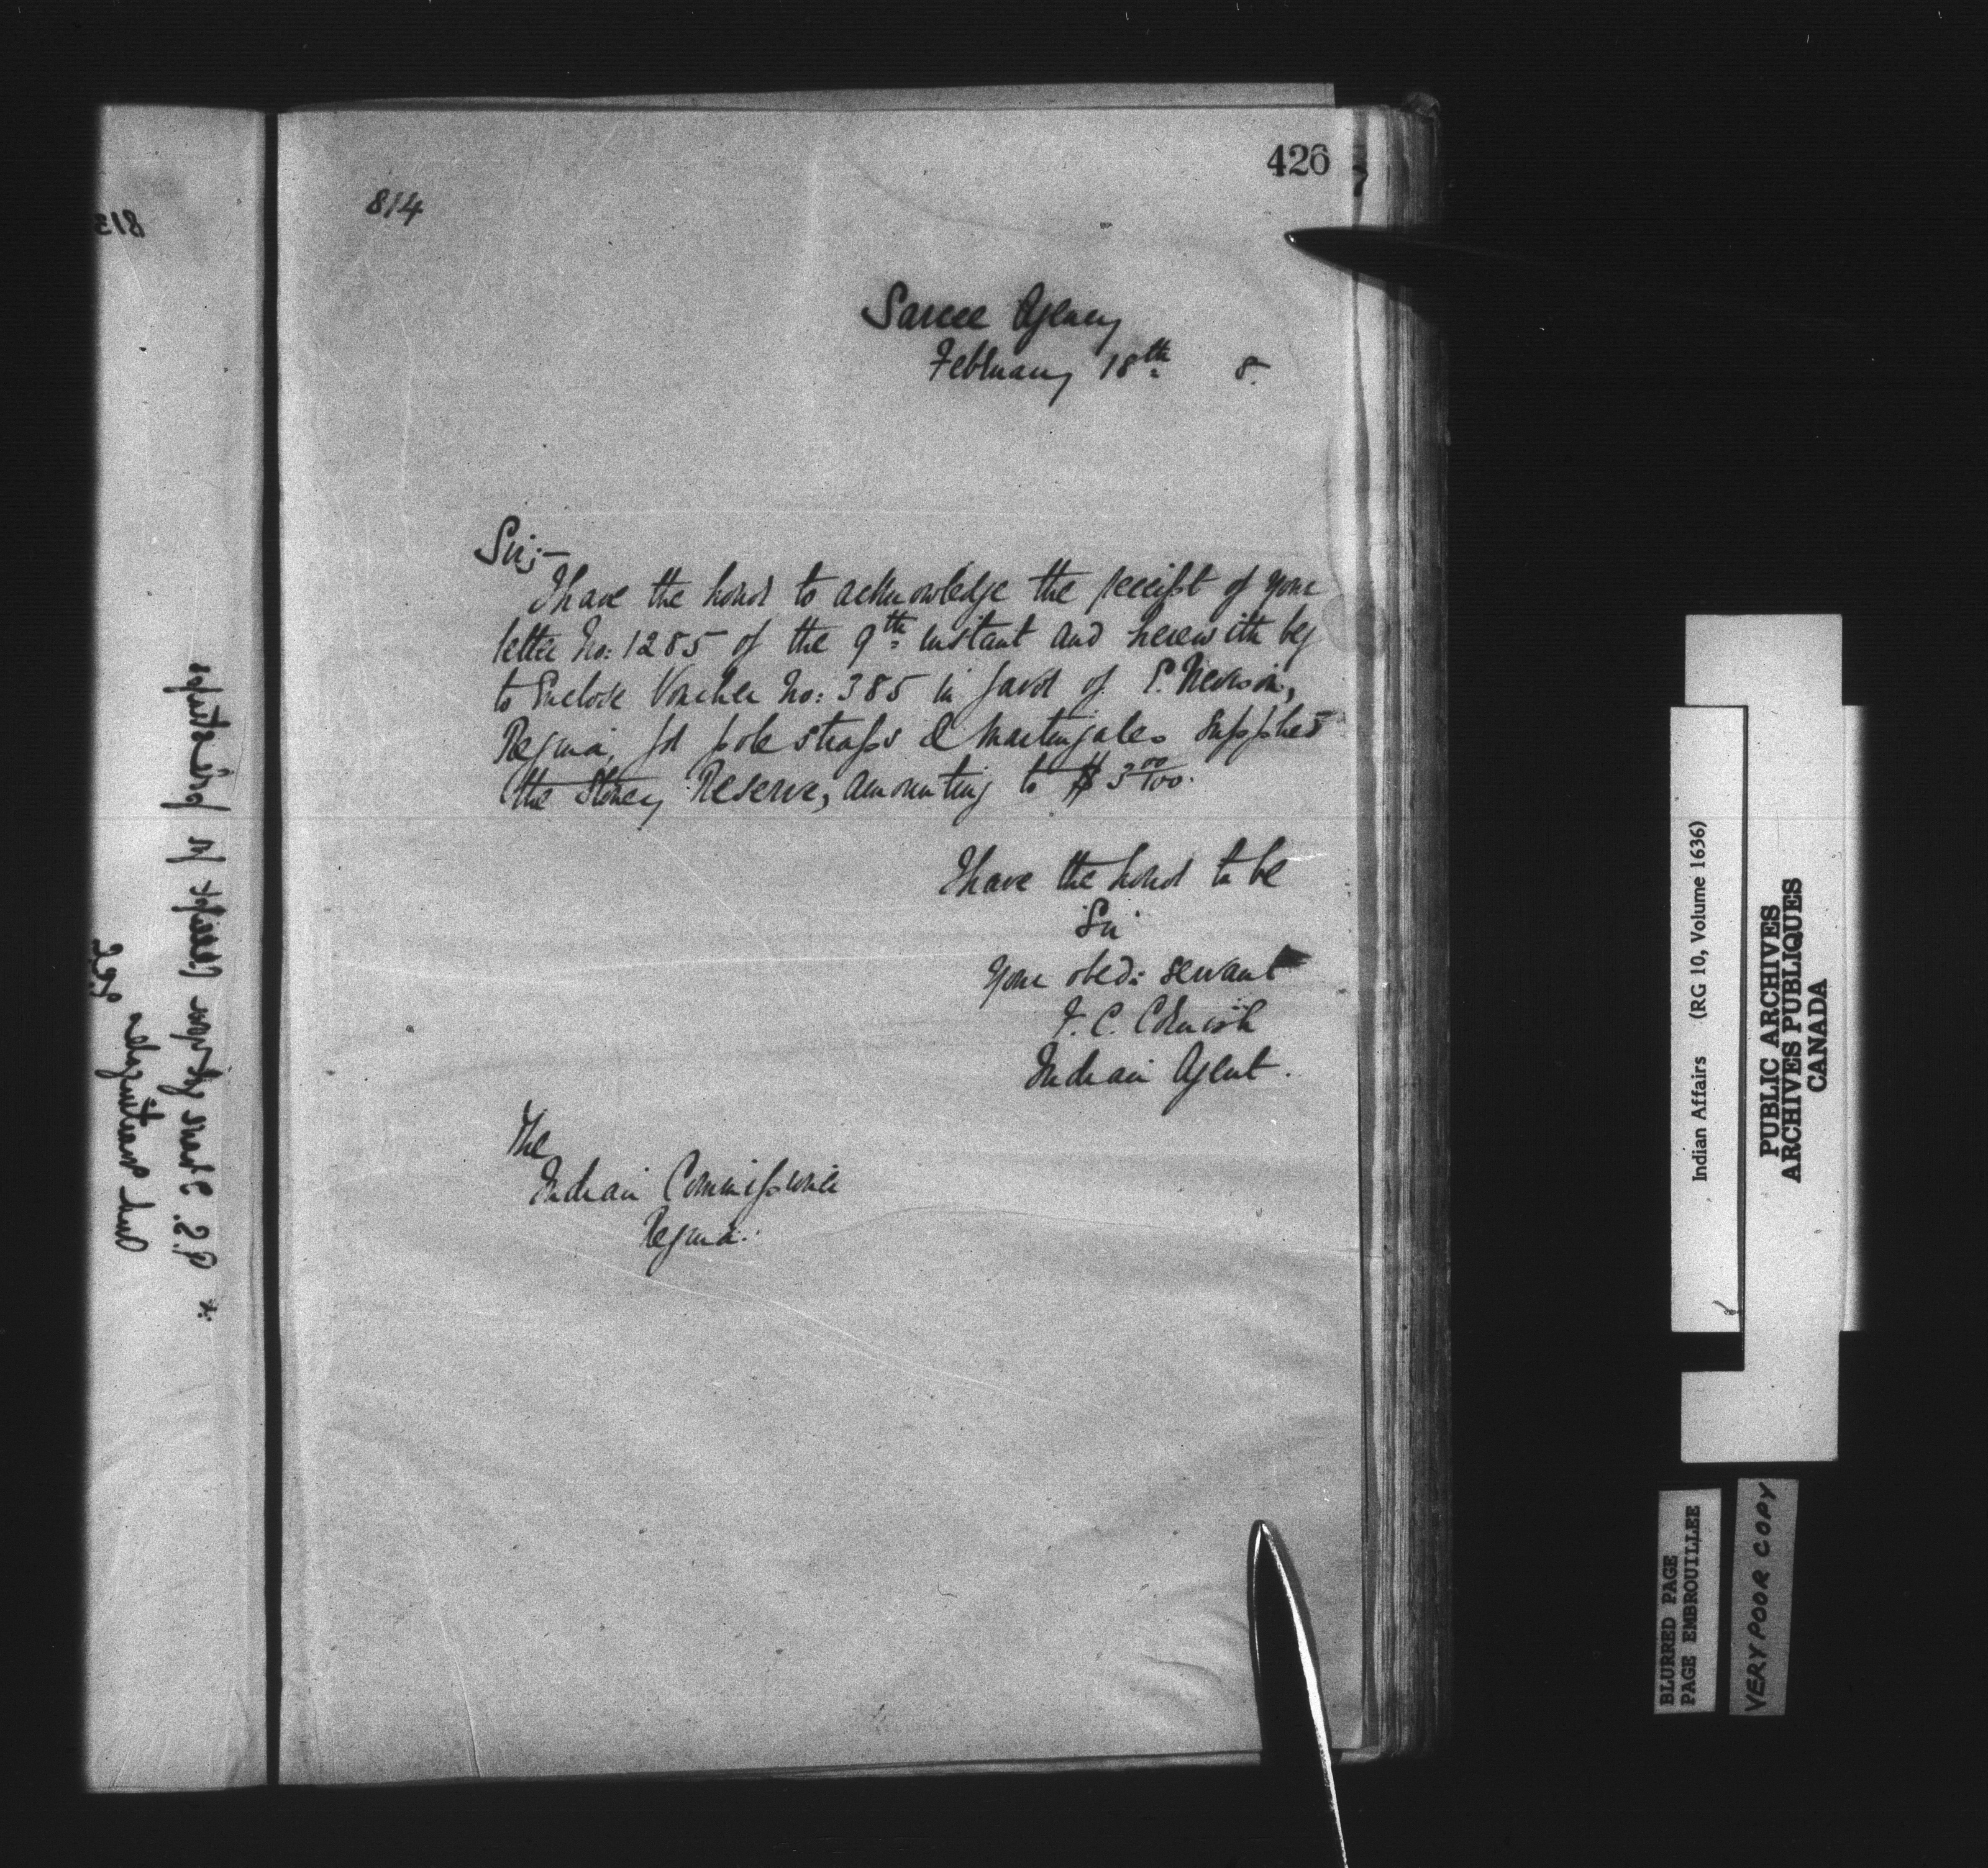 426
814
Sarcee Agency
February 18th 8.
Sir;-
I have the honor to acknowledge the receipt of your
letter No: 1285 of the 9th instant and herewith beg
to Enclose Voucher No: 385 in favor of
Regina, for pole straps & Martingales supplied
the Stoney Reserve, amounting to $ 3 00/100.
I have the honor to be
Sir
Your obed: servant
F. C. Cornish
Indian Agent.
The
Indian Commissioner
Regina.
813
Indian Affairs (RG 10, Volume 1636)
PUBLIC ARCHIVES
ARCHIVES PUBLIQUES
CANADA
BLURRED PAGE
PAGE EMBROUILLEE
VERY POOR COPY